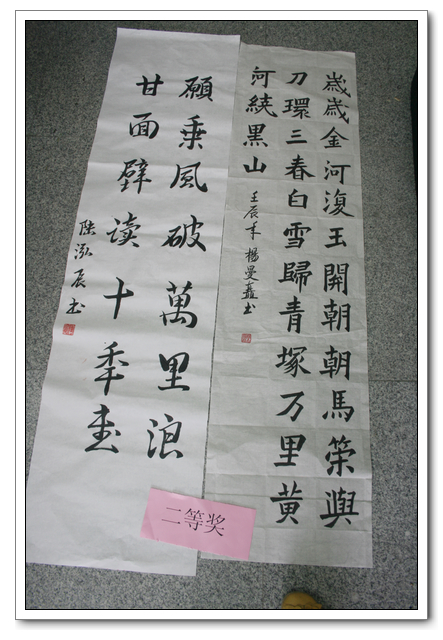 歲歲金河復玉開朝朝馬策與
刀環三春白雪歸青塚万里黃
河繞黑山
壬辰年楊曼鑫书
願乘風破萬里浪
甘面壁读十年書
陆泓辰书
二等奖